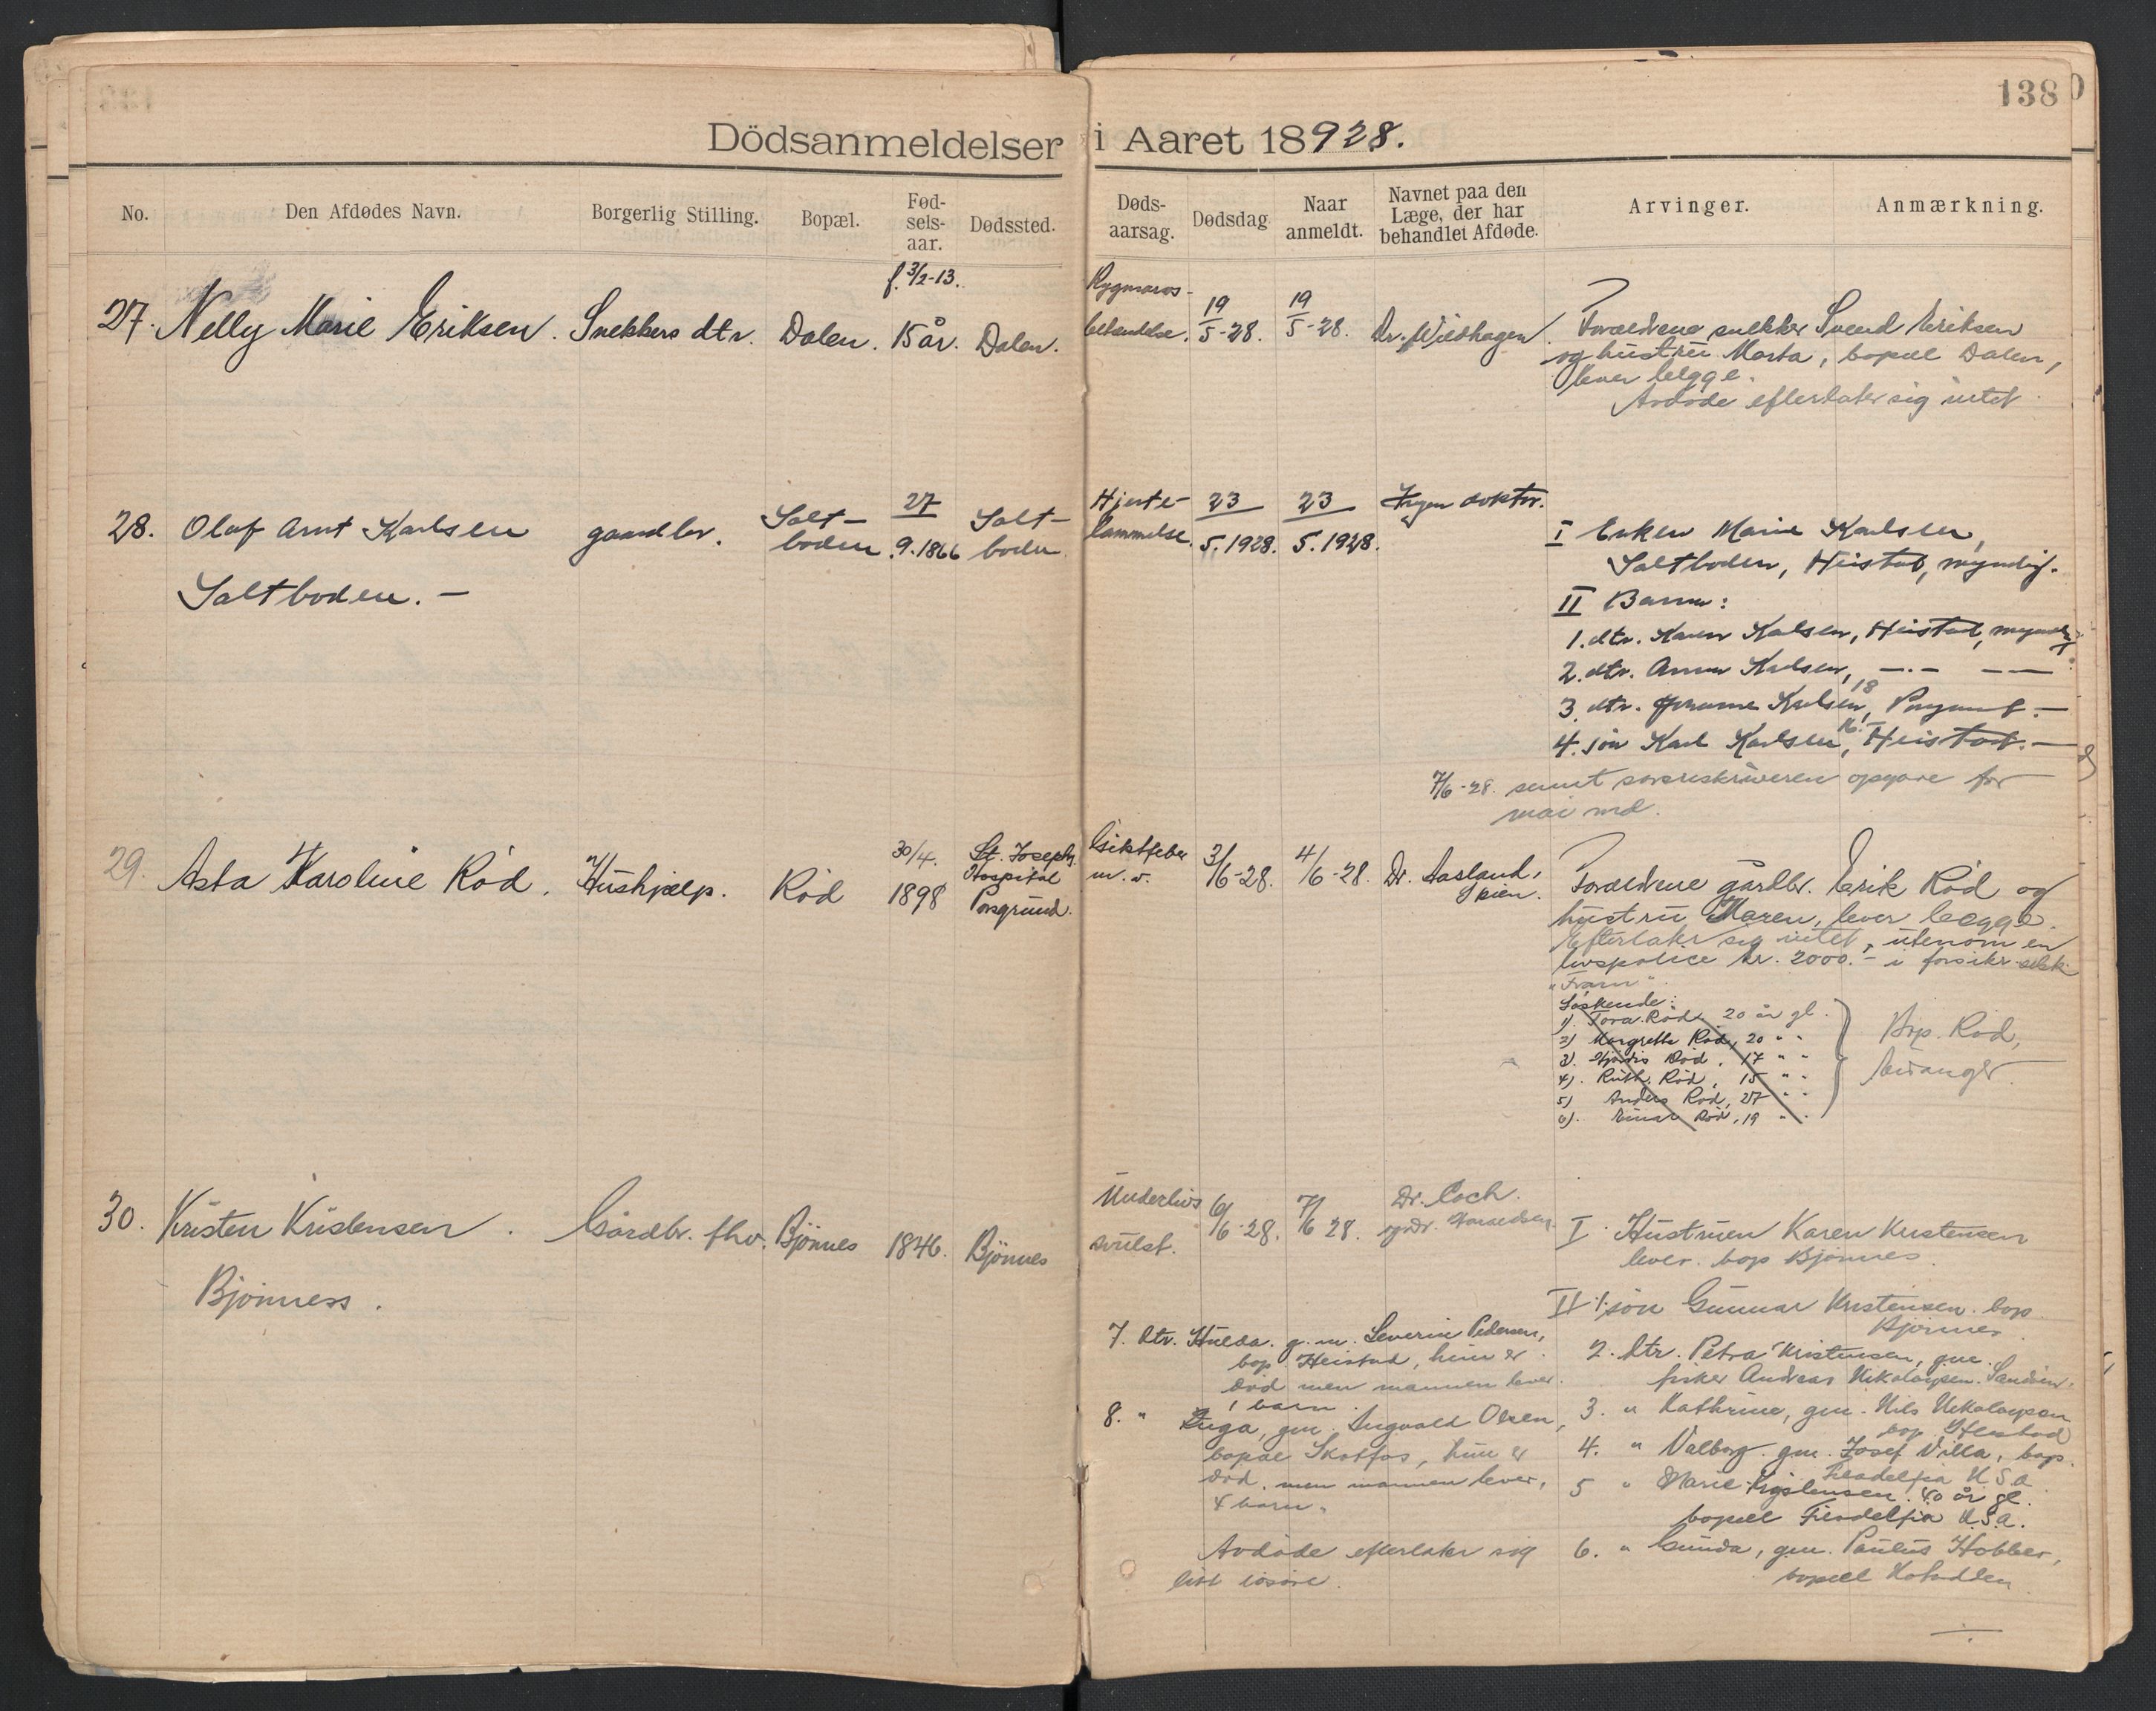 138
Dödsanmeldelser i Aaret 18928.
No. Den Afdødes Navn. Borgerlig Stilling. Bopæl. Fød-sels-aar. Dødssted. Døds-aarsag. Dødsdag Naar anmeldt. Navnet paa den Læge, der har behandlet Afdøde. Arvinger. Anmærkning.
f. 3/2-13.
27. Nelly Marie Eriksen. Snekkers dtr. Dalen. 15 år. Dalen.
behandelse. 19/5-28. 19/5-28. Dr. Wildhagen.
Forældrene snekker Svend Eriksen
og hustru Marta, bopæl Dalen,
lever begge.
Avdøde efterlater sig intet.
28. Olaf Arnt Karlsen gaardbr. Salt-boden 27/9.1866 Salt-boden
Saltboden. –
Hjerte-lammelse. 23/5.1928. 23/5.1928. Ingen doktor.
I Enken Marie Karlsen,
Saltboden, Heistad, myndig.
II Barn:
1. dtr. Karen Kalsen, Heistad, myndig
2. dtr. Anna Karlsen, –.– ––
3. dtr. Karlsen, 18
4. søn Karl Karlsen, 16. Heistad. –
7/6-28. sendt sorenskriveren opgave for
mai md.
29. Asta Karoline Röd. Hushjælp. Röd 30/4. 1898 St. Josephs Hospital Porsgrund.
Giktfeber m.v. 3/6-28. 4/6-28. Dr. Aasland, Skien.
Forældrene gårdbr. Erik Röd og
hustru Maren, lever begge.
Efterlater sig intet, utenom en
livspolice kr. 2000.- i forsikr. selsk.
"Fram".
Söskende:
1). Tora Röd, 20 år gl.
2) Margrethe Röd, 20 " "
3). Hjördis Röd, 17 " "
4). Ruth Röd, 15 " "
5) Anders Röd, 27 " "
6). Einar Röd, 19 " "
Bop. Röd,
Eidanger.
30. Kristen Kristensen. Gårdbr. fhv. Bjönnes 1846. Bjönnes
Bjönness.
Underlivs svulst. 6/6-28. 7/6 28. Dr. Coch.
I. Hustruen Karen Kristensen
lever. bop Bjönnes.
II 1. sön Gunnar Kristensen. bop
Bjönnes.
2. dtr. Petra Kristensen, gm.
fisker Andreas Nikolaysen.
3. " Kathrine, gm. Nils Nikolaysen
bop. Heistad
4. " Valborg. gm. Josef Villa, bop.
Filadelfia U S a
5 " Marie Kristensen. 40 år gl.
bopæl Filadelfia U.S.a.
6. " Gunda, gm. Paulus Hobber,
bopæl Notodden
7. dtr. Hulda. g.m. Severin Pedersen,
bop. Heistad, hun er
död men mannen lever.
1 barn.
8. " Inga, gm. Ingvald Olsen,
bopæl Skotfos, hun er
död, men mannen lever,
4 barn.
Avdöde efterlater sig
litt lösöre.